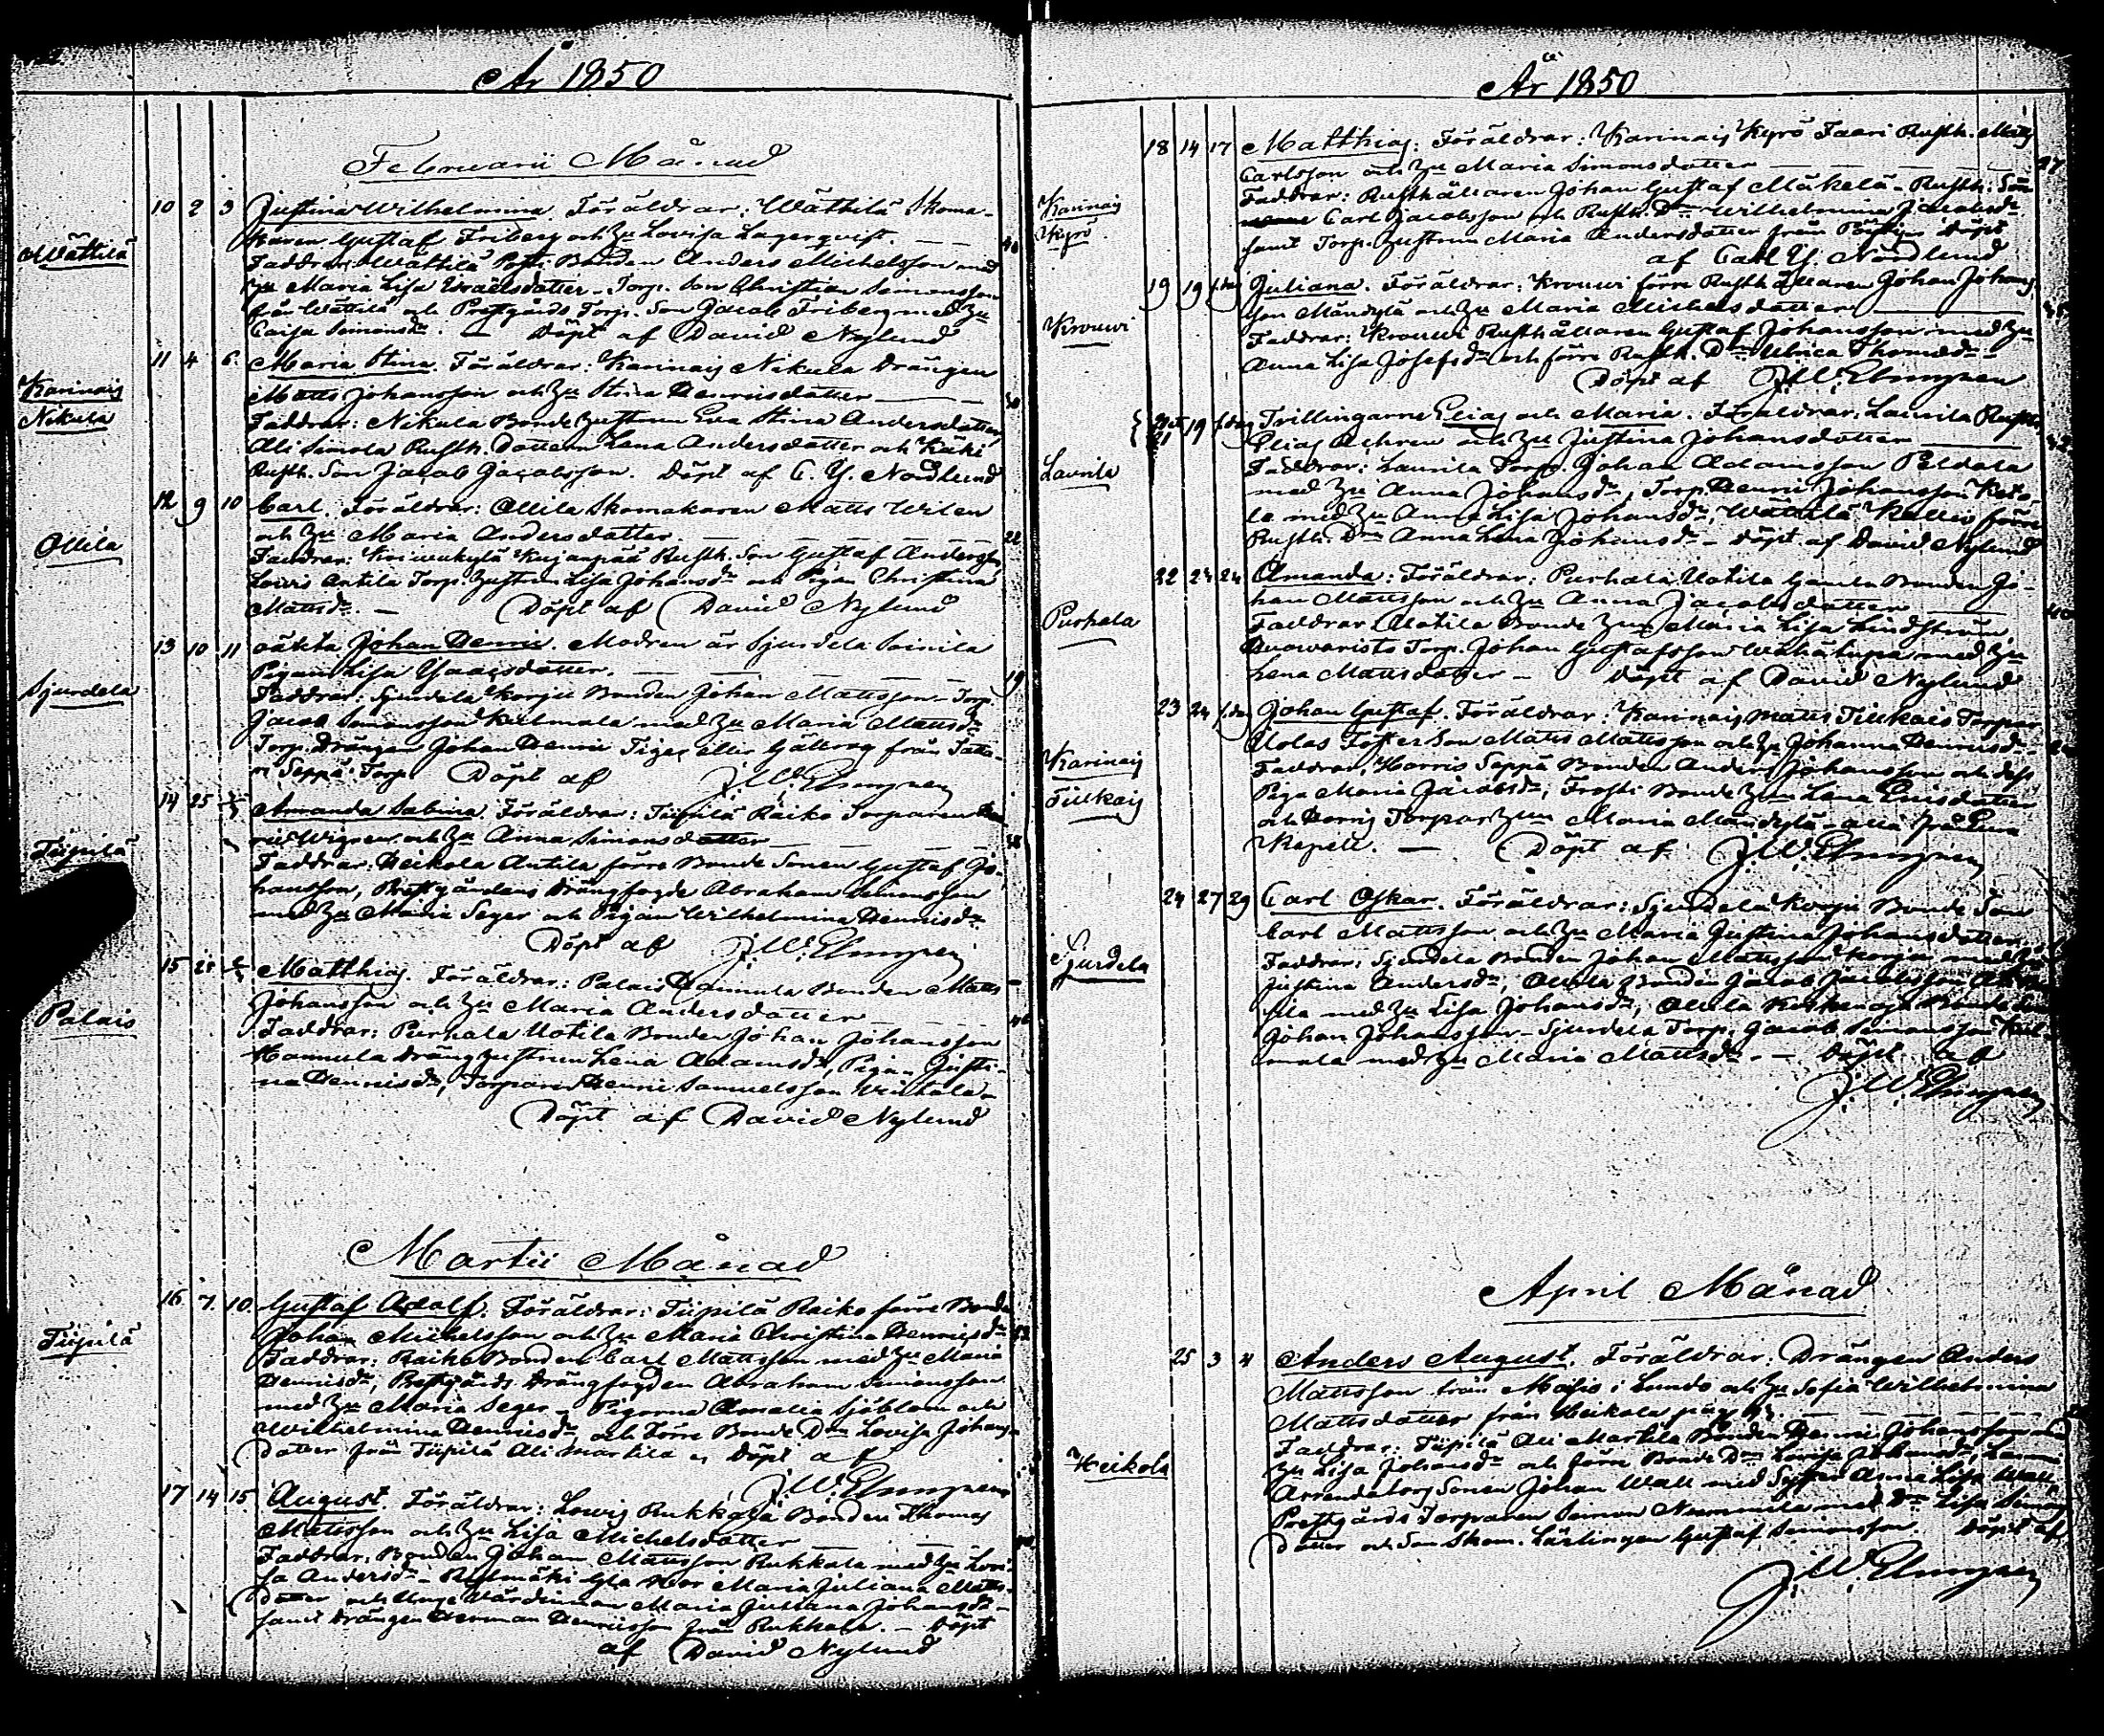 År 1850
Februarii Månad
Wättilä
10 2 3 Justina Wilhelmina. Föräldrar: Wättilä Skoma-
karen Gustaf Friberg och Hu Lovisa Lagerqvist.
Faddrar: Wättilä Bonden Anders Michelsson med
Hu Maria Lisa Israelsdotter - Torp. Son Christian Simonsson
från Wättilä och Prestgårds Torp. Son Jacob Friberg med Hu
Caisa Simonsdr. — Döpt af David Nylund
Karinais
Nikula
11 4 6. Maria Stina. Föräldrar: Karinais Nikula Drängen
Matts Johansson och Hu Stina Henricsdotter
Faddrar: Nikula Bonde hustrun Eva Stina Andersdotter,
Ali Simola Rusth. Dottern Lena Andersdotter och Käki
Rusth. Son Jacob Jacobsson. Döpt af C. Y. Nordlund
Ollila
12 9 10 Carl. Föräldrar: Ollila Skomakaren Matts Wilen
och Hu Maria Andersdotter.
Faddrar: Kujanpää Rusth. Son Gustaf Andersson,
Lowis Antila Torp. hustrun Lisa Johansdr och Pigan Christina
Mattsdr. — Döpt af David Nylund
Sjurdela
13 10 11 oäkta Johan Henric. Modren är Sjurdela Sainila
Pigan Lisa Isaacsdotter. 19
Faddrar: Sjurdela Korju Bonden Johan Mattsson - Torp.
Jacob Simonsson Kulmala med Hu Maria Mattsdr
Torp. Drängen Johan Henric Tiger eller Gällberg från
Seppä Torp. Döpt af J. W. Elmgren
Tüpilä
14 25 Amanda Sabina. Föräldrar: Tüpilä Raiko Torparen Hen-
ric Wigren och Hu Anna Simonsdotter
Faddrar: Heikola Antila förre Bonde Sonen Gustaf Jo-
hansson, Prestgårdens Drängfogde Abraham Simonsson
med Hu Maria Seger och Pigan Wilhelmina Henricsdr
Döpt af J. W. Elmgren
Palais
15 25 Matthias. Föräldrar: Palais Hannula Bonden Matts
Johansson och Hu Maria Andersdotter
Faddrar: Purhala Uotila Bonden Johan Johansson
Hannula Dräng hustrun Lena Adamsdr, Pigan Justi-
na Henricsdr, Torparen Henric Samuelsson
Döpt af David Nylund
Martii Månad
Tüpilä
16 7 10. Gustaf Adolf. Föräldrar: Tüpilä Raiko förre Bonden
Johan Michelsson och Hu Maria Christina Henricsdr
Faddrar: Raiko Bonden Carl Mattsson med Hu Maria
Henricsdr, Prestgårds Drängfogden Abraham Simonsson
med Hu Maria Seger - Pigorna Amalia Sjöblom och
Wilhelmina Henricsdr och Förre Bonde Dn Lovisa Johans-
dotter från Tüpilä Ali Martila. Döpt af
J. W. Elmgren
17 14 15 August. Föräldrar: Lowis Rukkala Bonden Thomas
Mattsson och Hu Lisa Michelsdotter
Faddrar: Bonden Johan Mattsson Rukkala med Hu Lovi-
sa Andersdr - Maria Juliana Matts-
dotter och Unga Värdinnan Maria Justiana Johansdr
samt Drängen Herman Henricsson från Rukkala. — Döpt
af David Nylund
År 1850
Karinais
Kyrö
18 14 17 Matthias: Föräldrar: Karinais Kyrö Taari Rusth. Matts
Carlsson och Hu Maria Simonsdotter 27
Faddrar: Rusthållaren Johan Gustaf Mäkelä - Rusth. Son
Carl Jacobsson och Rusth. Dn Wilhelmina Jacobsdr
samt Torp. hustrun Maria Andersdotter från Döpt
af Carl Y. Nordlund
Krouwi
19 19 s.dag Juliana. Föräldrar: Krouwi förre Rusthållaren Johan Johans-
son Mändylä och Hu Maria Michelsdotter
Faddrar: Krouwi Rusthållaren Gustaf Johansson med Hu
Anna Lisa Josefsdr och förre Rusth. Dn Ulrica Thomædr -
Döpt af J. W. Elmgren
Laurila
20 et 21 19 s.dag Tvillingarne Elias och Maria. Föräldrar: Laurila Rusth.
Elias Achren och Hu Justina Johansdotter 42
Faddrar: Laurila Torp. Johan Adamsson Peldola
med Hu Anna Johansdr, Torp. Henric Johansson Keto-
la med Hu Anna Lisa Johansdr, Wättilä förre
Rusth. Dn Anna Lena Johansdr - Döpt af David Nylund
Purhala
22 24 24 Amanda: Föräldrar: Purhala Uotila Gamla Bonden Jo-
han Mattsson och Hu Anna Jacobsdotter 40
Faddrar: Uotila Bonde Hun Maria Lisa Lindström,
Auvaristo Torp. Johan Gustafsson med Hu
Lena Mattsdotter — Döpt af David Nylund
Karinais
Tiukais
23 24 s.dag Johan Gustaf. Föräldrar: Karinais Matts Tiukais Torpare
Uolas Foster Son Matts Mattsson och Hu Johanna Henricsdr
Faddrar: Harris Seppä Bonden Anders Johansson och dess
Piga Maria Jacobsdr, Frosti Bonde Hun Lena
och Torpar Hun Maria Mändylä - alla från
Kapell. — Döpt af J. W. Elmgren
Sjurdela
24 27 29 Carl Oskar. Föräldrar: Sjurdela Korju Bonde Son
Carl Mattsson och Hu Maria Justina Johansdotter.
Faddrar: Sjurdela Bonden Johan Mattsson Korju med Hu
Justina Andersdr, Ollila Bonden Jacob Jacobsson
med Hu Lisa Johansdr, Ollila
Johan Johansson - Sjurdela Torp. Jacob Simonsson Kul-
mala med Hu Maria Mattsdr. — Döpt af
J. W. Elmgren
April Månad
Heikola
25 3 4 Anders August. Föräldrar: Drängen Anders
Mattsson från i Lundo och Hu Sofia Wilhelmina
Mattsdotter från Heikola
Faddrar: Tüpilä Ali Martila Bonden Henric Johansson med
Hu Lisa Johansdr och förre Bonde Dn Lovisa Johansdr,
Arrendators Sonen Johan Wall med Syster Anna Lisa Wall
Prestgårds Torparen Simon Nummila med Dn Lisa Simons-
dotter och Son Skom. Lärlingen Gustaf Simonsson. Döpt af
J. W. Elmgren